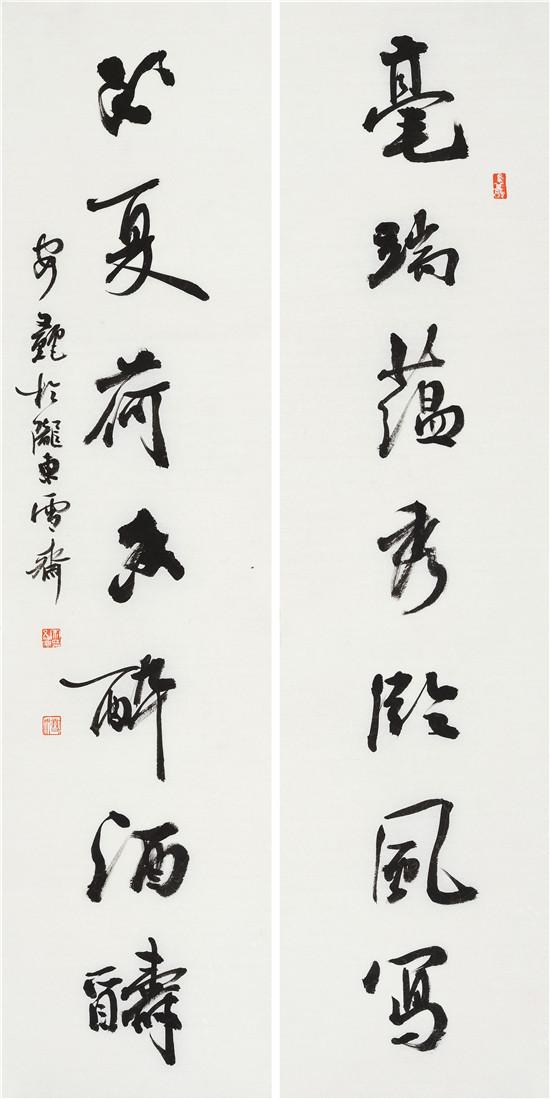 毫端蘊秀臨風寫
夏荷醉酒醻
安艷於隴東雪齋